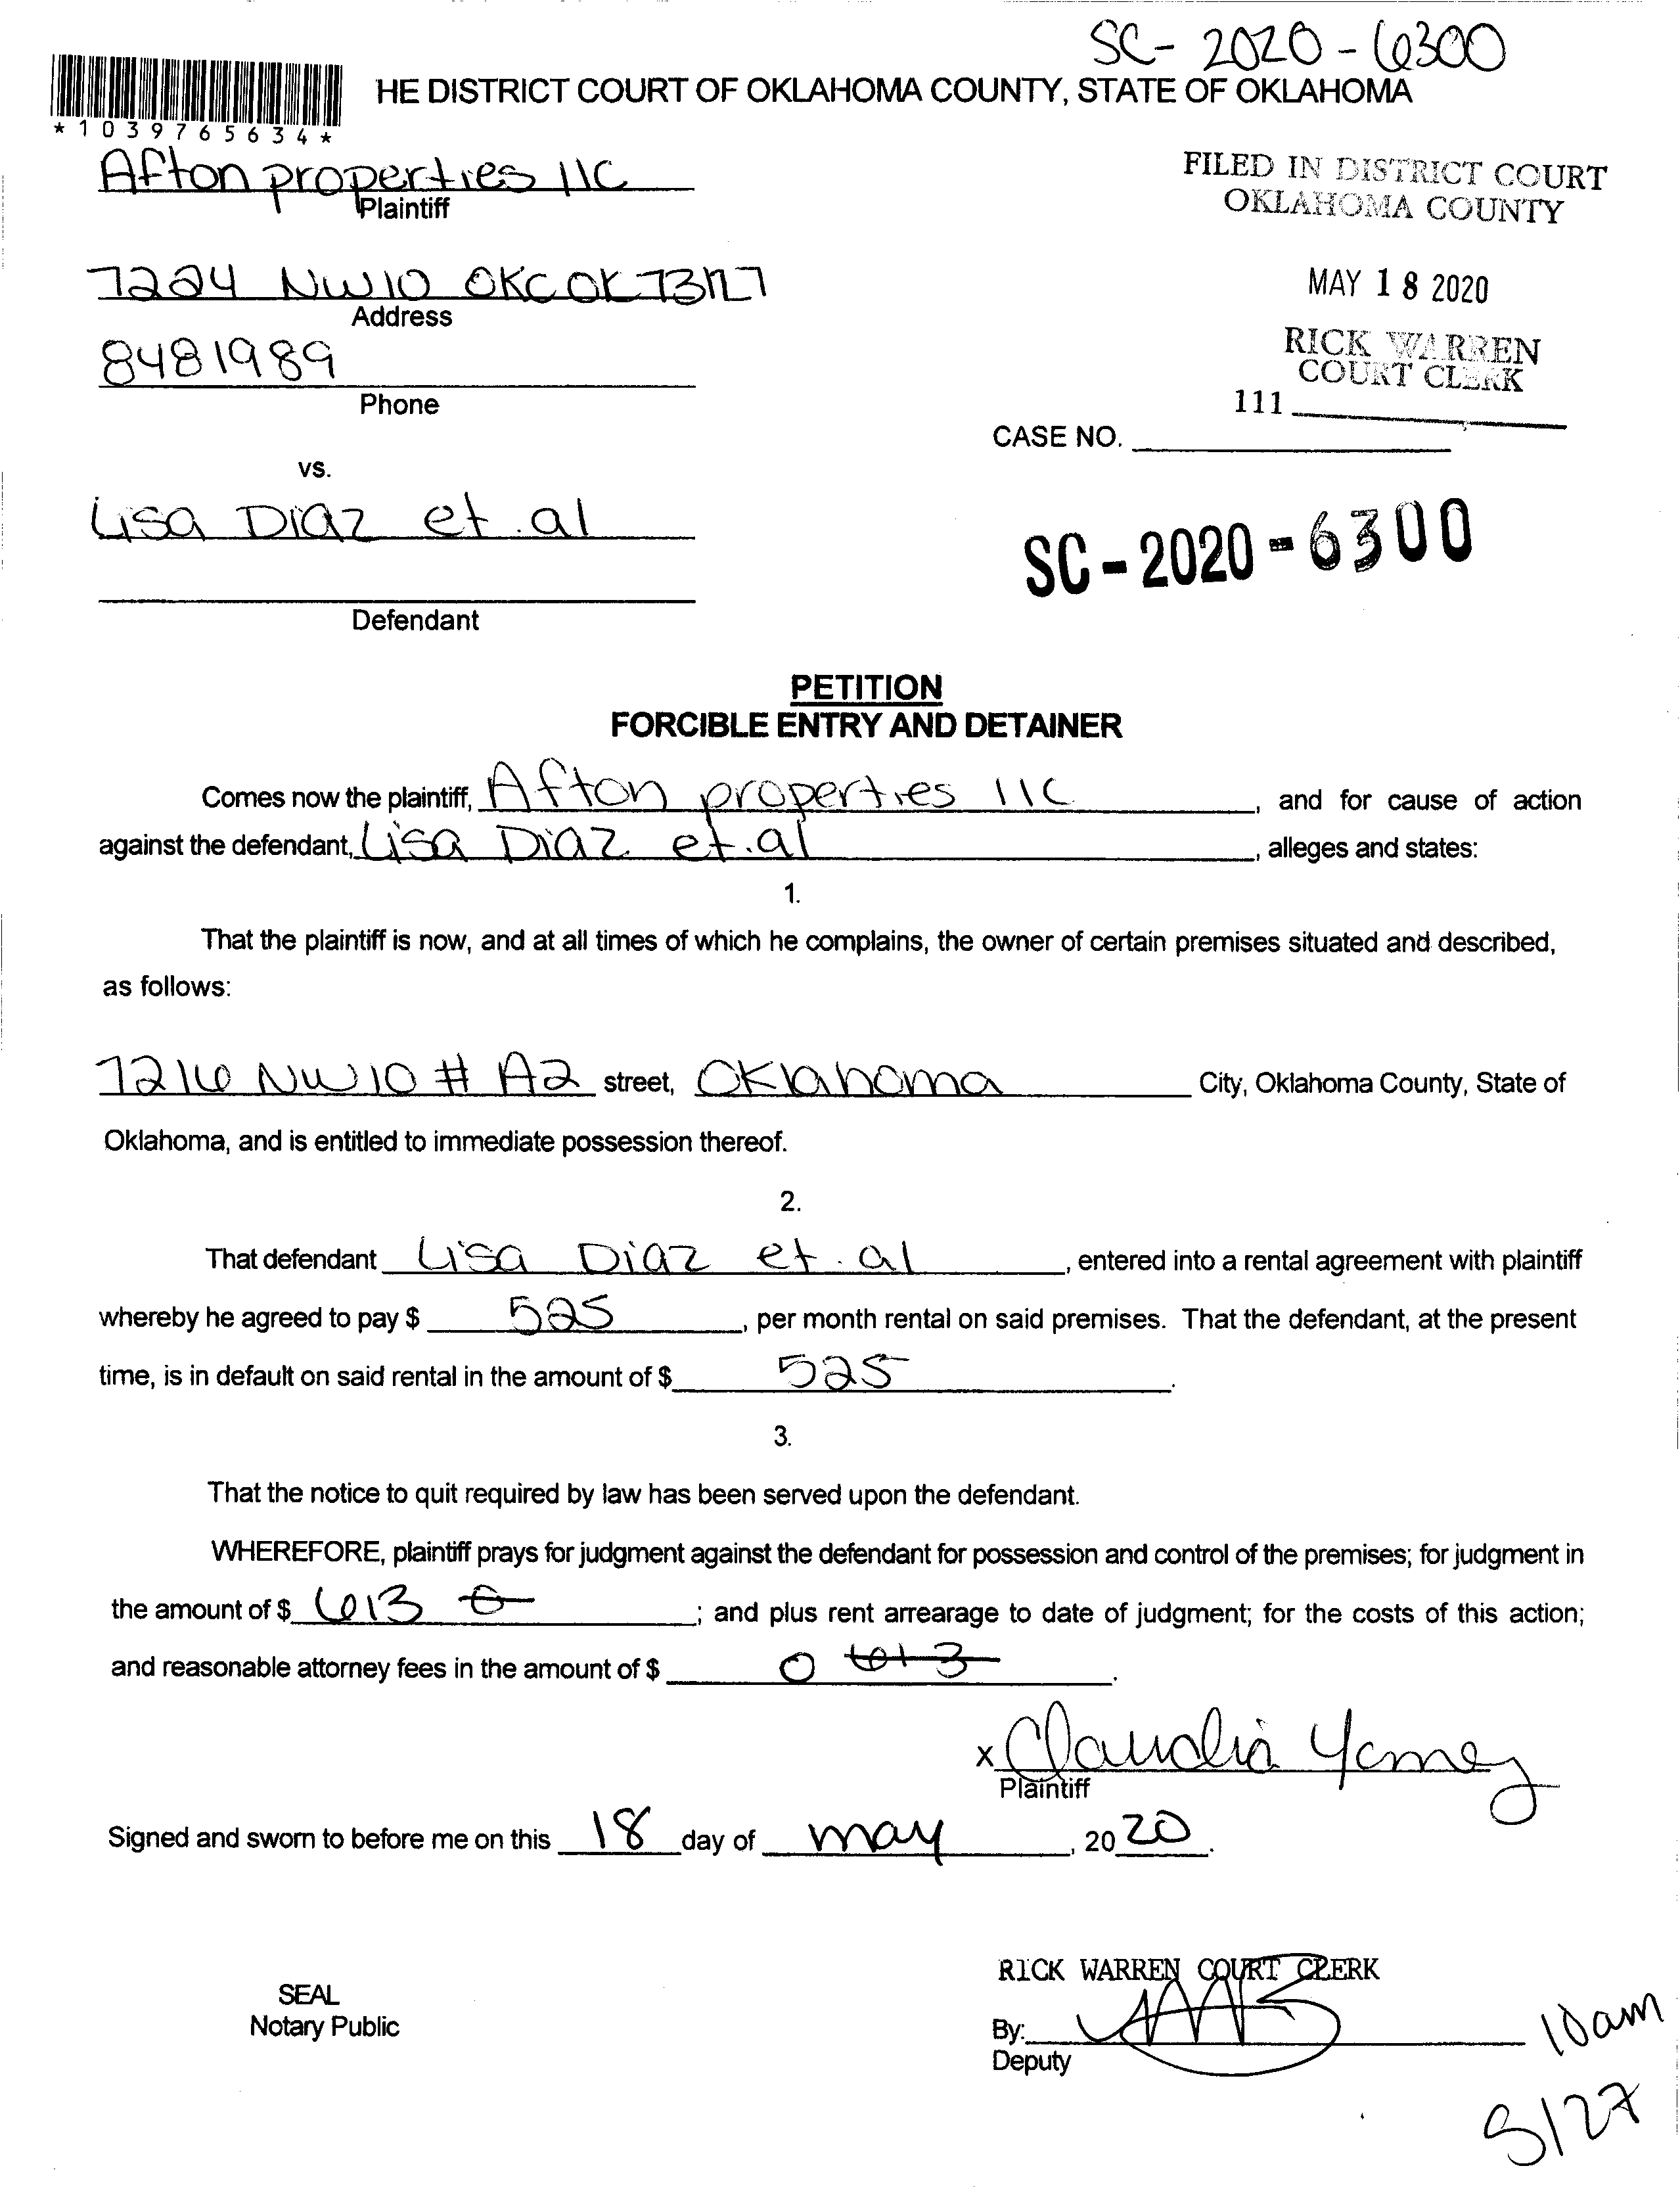 SC-2020-6300
HE DISTRICT COURT OF OKLAHOMA COUNTY, STATE OF OKLAHOMA
*1039765634*
Afton properties llc
Plaintiff
FILED IN DISTRICT COURT
OKLAHOMA COUNTY
7224 NW10 OKC OK 73127
Address
MAY 18 2020
8481989
Phone
RICK WARREN
COURT CLERK
111
CASE NO.
vs.
Lisa Diaz et.al
SC-2020-6300
Defendant
PETITION
FORCIBLE ENTRY AND DETAINER
Comes now the plaintiff, Afton properties llc, and for cause of action
against the defendant, Lisa Diaz et.al, alleges and states:
1.
That the plaintiff is now, and at all times of which he complains, the owner of certain premises situated and described,
as follows:
7216 NW10 # A2 street, Oklahoma City, Oklahoma County, State of
Oklahoma, and is entitled to immediate possession thereof.
2.
That defendant Lisa Diaz et.al, entered into a rental agreement with plaintiff
whereby he agreed to pay $ 525, per month rental on said premises. That the defendant, at the present
time, is in default on said rental in the amount of $ 525.
3.
That the notice to quit required by law has been served upon the defendant.
WHEREFORE, plaintiff prays for judgment against the defendant for possession and control of the premises; for judgment in
the amount of $ 613 0; and plus rent arrearage to date of judgment; for the costs of this action;
and reasonable attorney fees in the amount of $ 0 613.
x Claudia
Plaintiff
Signed and sworn to before me on this 18 day of may, 2020.
RICK WARREN COURT CLERK
SEAL
Notary Public
By:
Deputy
10am
5/27